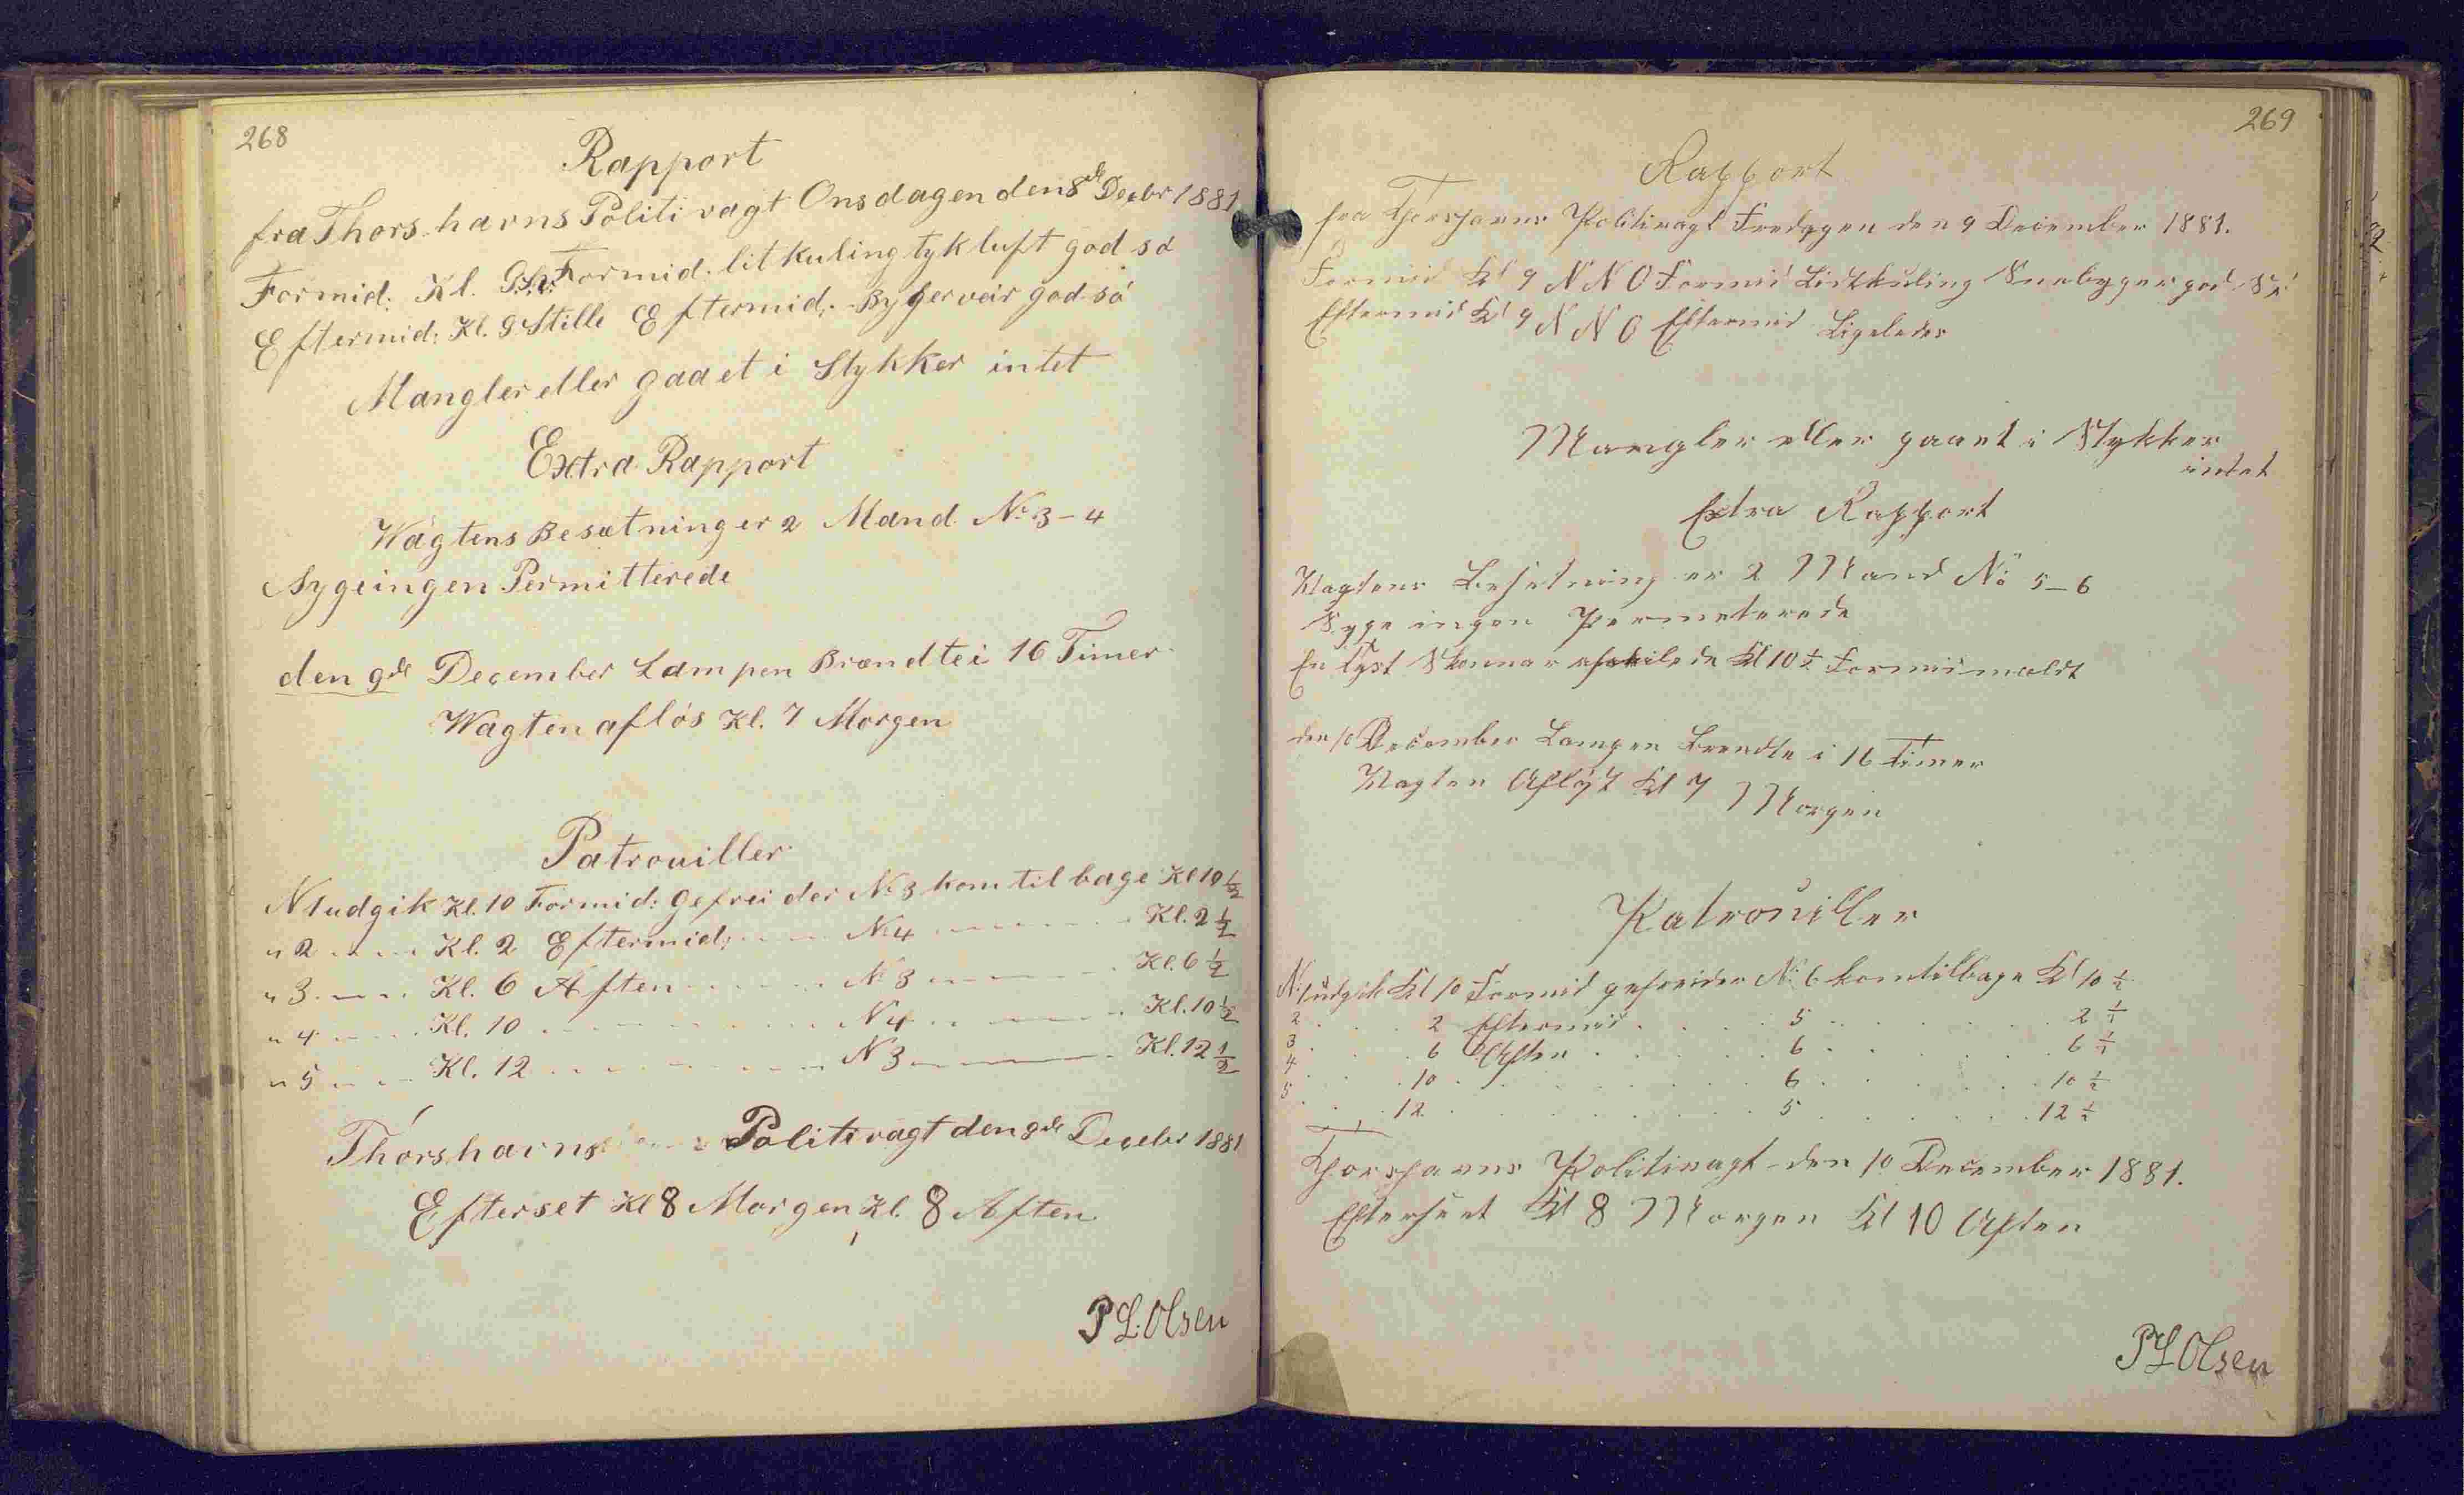 268
Rapport
fra Thorshavns Politivagt Onsdagen den 8de Decbr 1881
Formid: Kl. 9 Formid. litkuling tykluft god sø
Eftermid: Kl. 9 Stille Eftermid. Bygerveir god sø
Mangler eller gaaet i Stykker intet
Extra Rapport
Wagtens Besætning er 2 Mand No 3-4
Syge ingen Permitterede
den 9de December Lampen Brændte i 16 Timer
Wagten afløs Kl. 7 Morgen
Patrouiller
N 1 udgik Kl. 10 Formid: gefreider No 3 kom tilbage Kl 10 1/2
" 2 Kl. 2 Eftermid: N 4 Kl. 2 1/2
" 3 Kl. 6 Aften N 3 Kl. 6 1/2
" 4 Kl. 10 N 4 Kl. 10 1/2
" 5 Kl. 12 N 3 Kl. 12 1/2
Thorshavns Politivagt den 9de Decebr 1881
Efterset Kl 8 Morgen Kl. 8 Aften
P L. Olsen
269
Rapport
fra Thorshavns Politivagt Fredagen den 9 December 1881.
Formid Kl 9 NNO Formid Lidtkuling Snebyger god Sø
Eftermid Kl 9 NNO Eftermid Ligeledes
Mangler eller gaaet i Stykker
intet
Extra Rapport
Wagtens Besetning er 2 Mand No 5-6
Syge ingen Permeterede
En Tyst Skonnar afseilede Kl 10 1/2 Formid
den 10 December Lampen Brendte i 16 Timer
Wagten Afløst Kl 7 Morgen
Patrouiller
N: 1 udgik Kl 10 Formid gefreider N: 6 kom tilbage Kl 10 1/2
2 2 Eftermid 5 2 1/2
3 6 Aften 6 6 1/2
4 10 6 10 1/2
5 12 5 12 1/2
Thorshavns Politivagt den 10 December 1881.
Efterseet Kl 8 Morgen Kl 10 Aften
P L Olsen